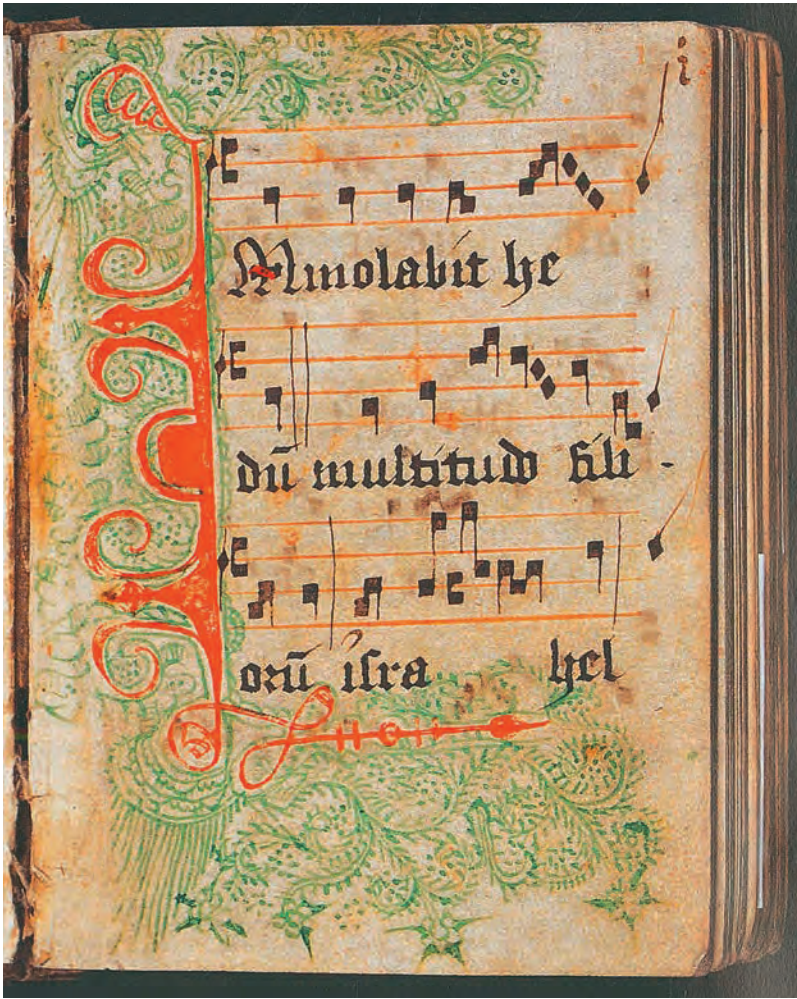 i
IMmolabit he
dū multitudo fili -
orū iſra hel